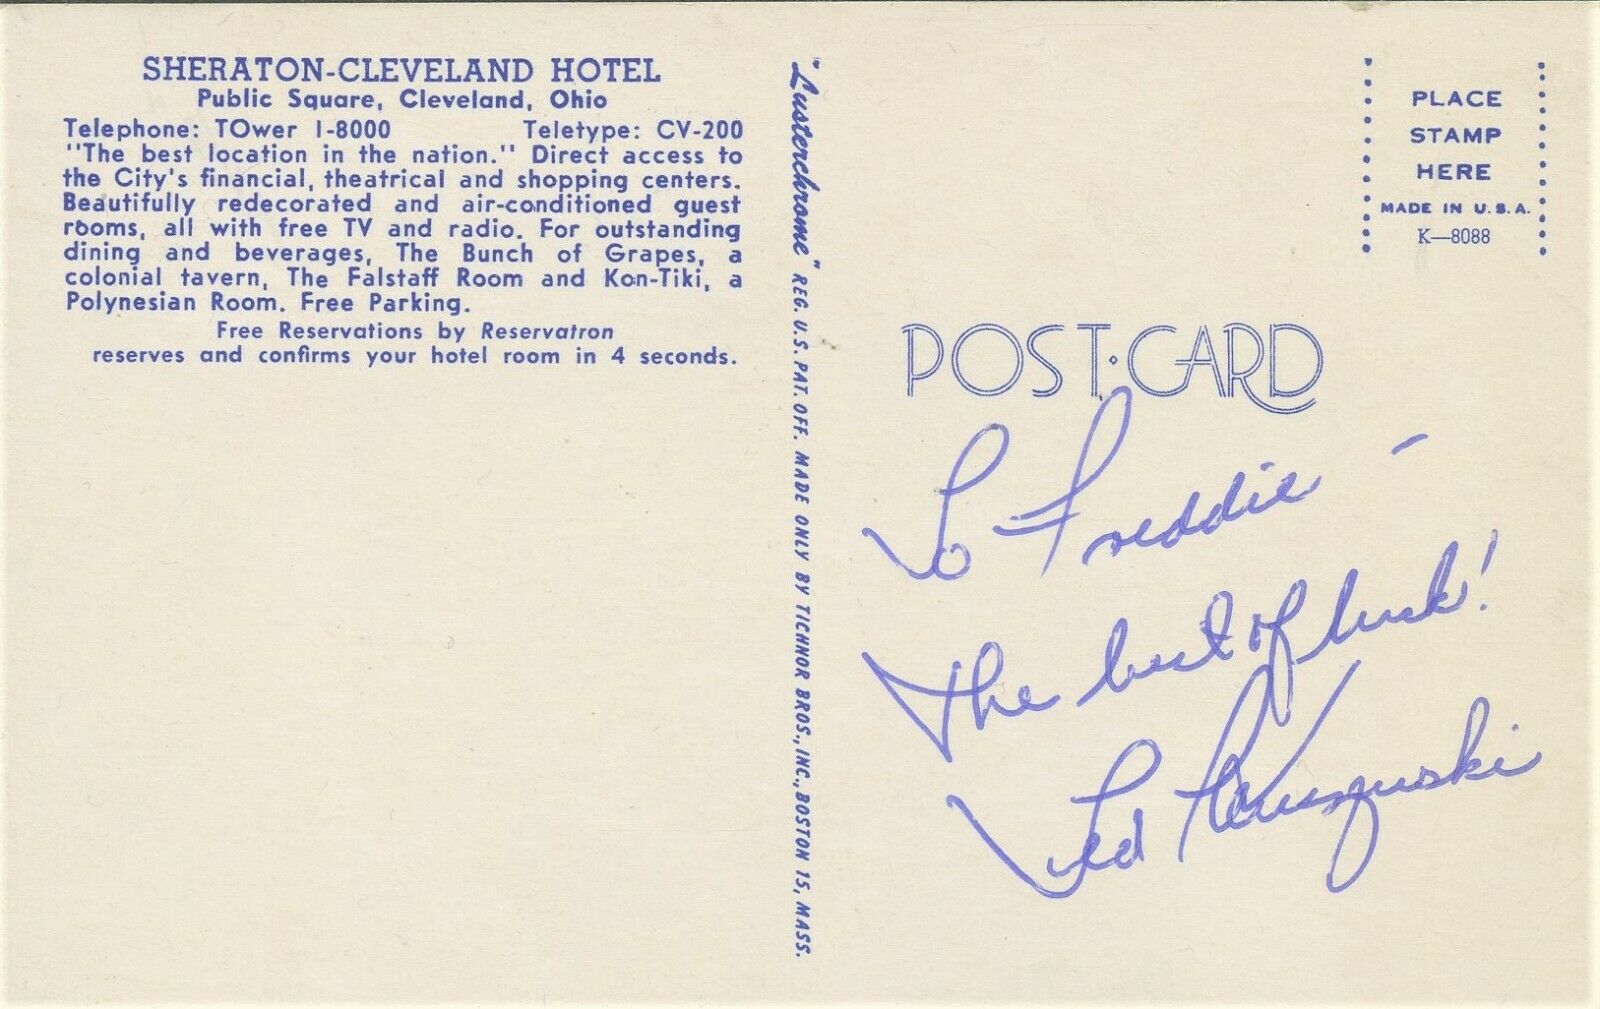 SHERATON-CLEVELAND HOTEL
Public Square, Cleveland, Ohio
Telephone: TOwer 1-8000 Teletype: CV-200
"The best location in the nation." Direct access to
the City's financial, theatrical and shopping centers.
Beautifully redecorated and air-conditioned guest
rooms, all with free TV and radio. For outstanding
dining and beverages, The Bunch of Grapes, a
colonial tavern, The Falstaff Room and Kon-Tiki, a
Polynesian Room. Free Parking.
Free Reservations by Reservatron
reserves and confirms your hotel room in 4 seconds.
"Lusterchrome" REG. U.S. PAT. OFF. MADE ONLY BY TICHNOR BROS., INC., BOSTON 15, MASS.
PLACE
STAMP
HERE
MADE IN U.S.A.
K—8088
POST·CARD
To Freddie –
The best of luck!
Ted Kluszewski